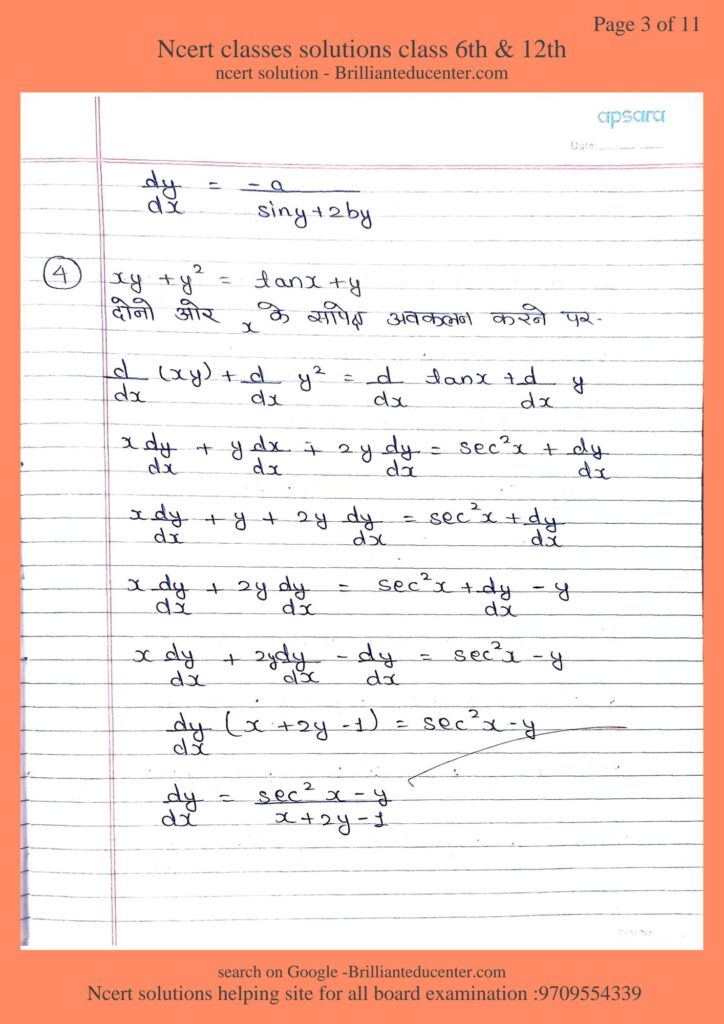 Page 3 of 11
Ncert classes solutions class 6th & 12th
ncert solution - Brillianteducenter.com
apsara
Date:
dy/dx = -a/(siny+2by)
④ xy + y² = tanx + y
दोनो ओर x के सापेक्ष अवकलन करने पर-
d/dx (xy) + d/dx y² = d/dx tanx + d/dx y
x dy/dx + y dx/dx + 2y dy/dx = sec²x + dy/dx
x dy/dx + y + 2y dy/dx = sec²x + dy/dx
x dy/dx + 2y dy/dx = sec²x + dy/dx - y
x dy/dx + 2y dy/dx - dy/dx = sec²x - y
dy/dx (x + 2y - 1) = sec²x - y
dy/dx = (sec² x - y)/(x + 2y - 1)
search on Google -Brillianteducenter.com
Ncert solutions helping site for all board examination :9709554339